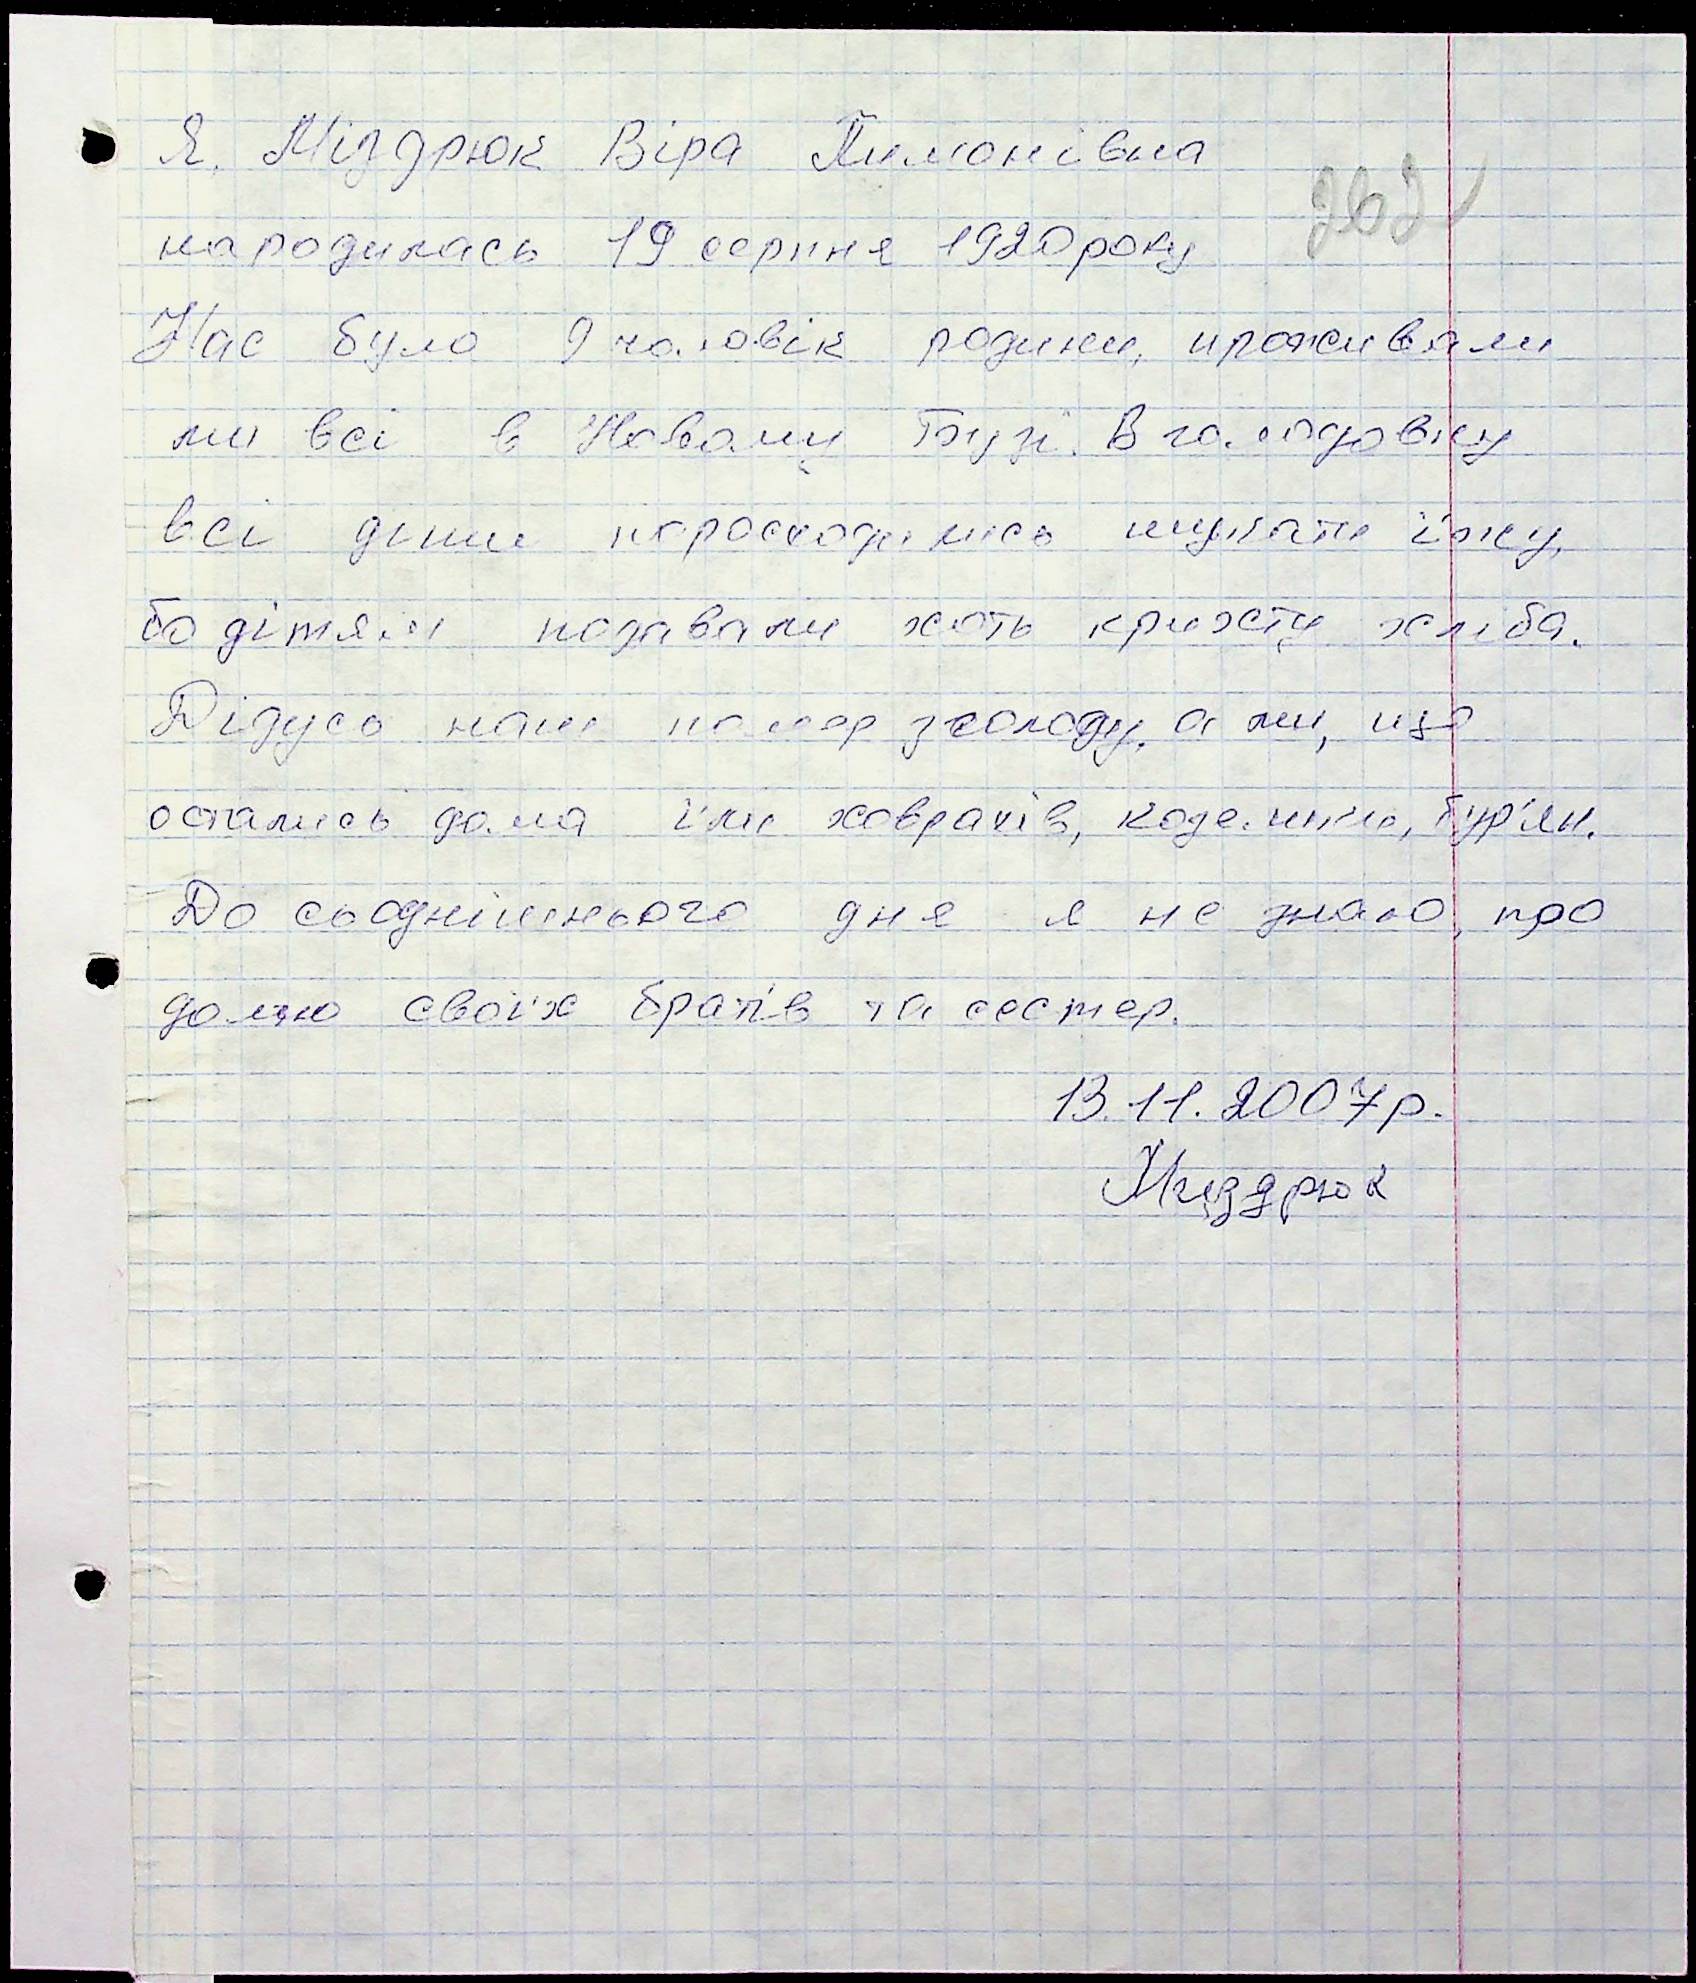 Я, Міздрюк Віра Пимонівна
262
народилась 19 серпня 1920 року
Нас було 9 чоловік родини, проживали
ми всі в Новому Бузі. В голодовку
всі діти поросходились шукати їжу,
бо дітям подавали хоть крихту хліба.
Дідусь наш помер з голоду, а ми, що
остались дома їли ховрахів, бур'ян.
До сьоднішнього дня я не знаю, про
долю своїх братів та сестер.
13.11.2007р.
Миздрюк